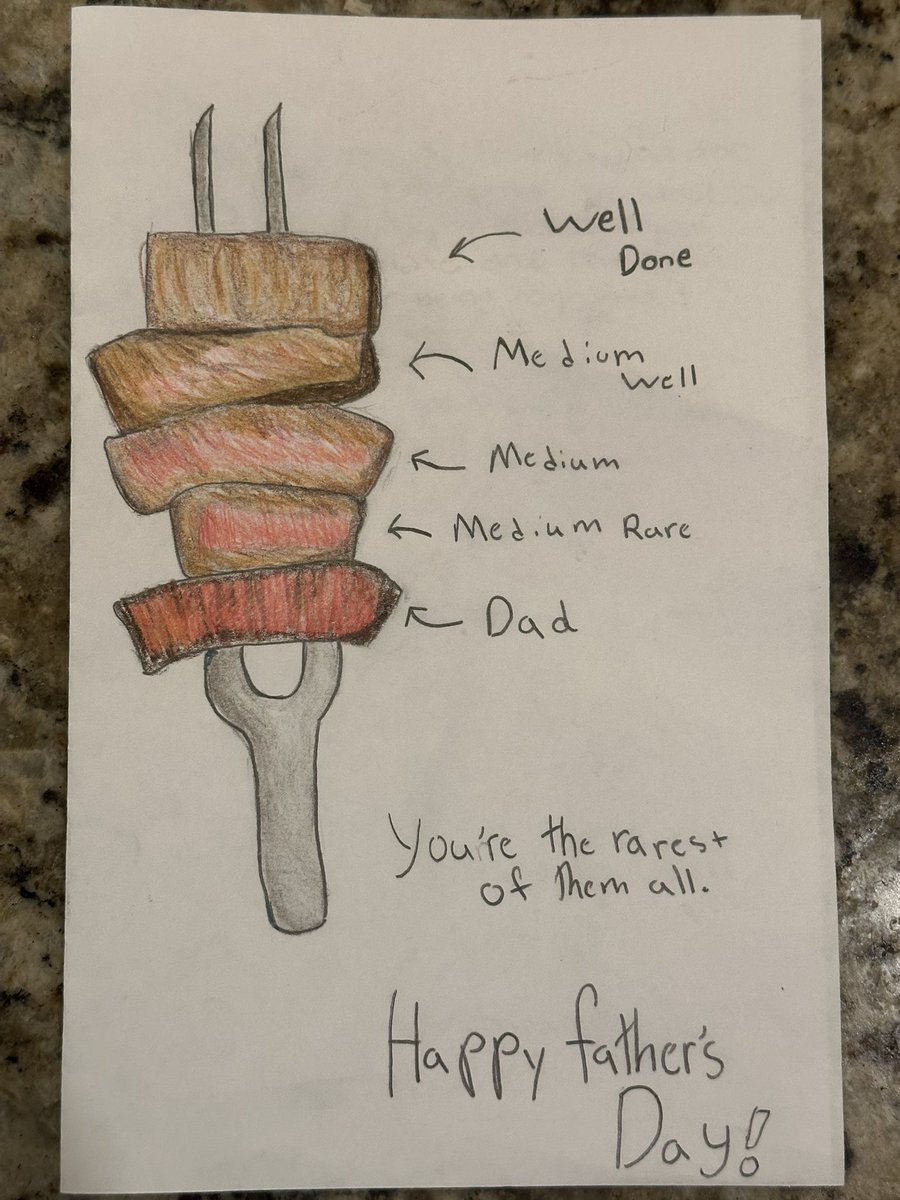 Well
Done
Medium
Well
Medium
Medium Rare
Dad
You're the rarest
of Them all.
Happy father's
Day!